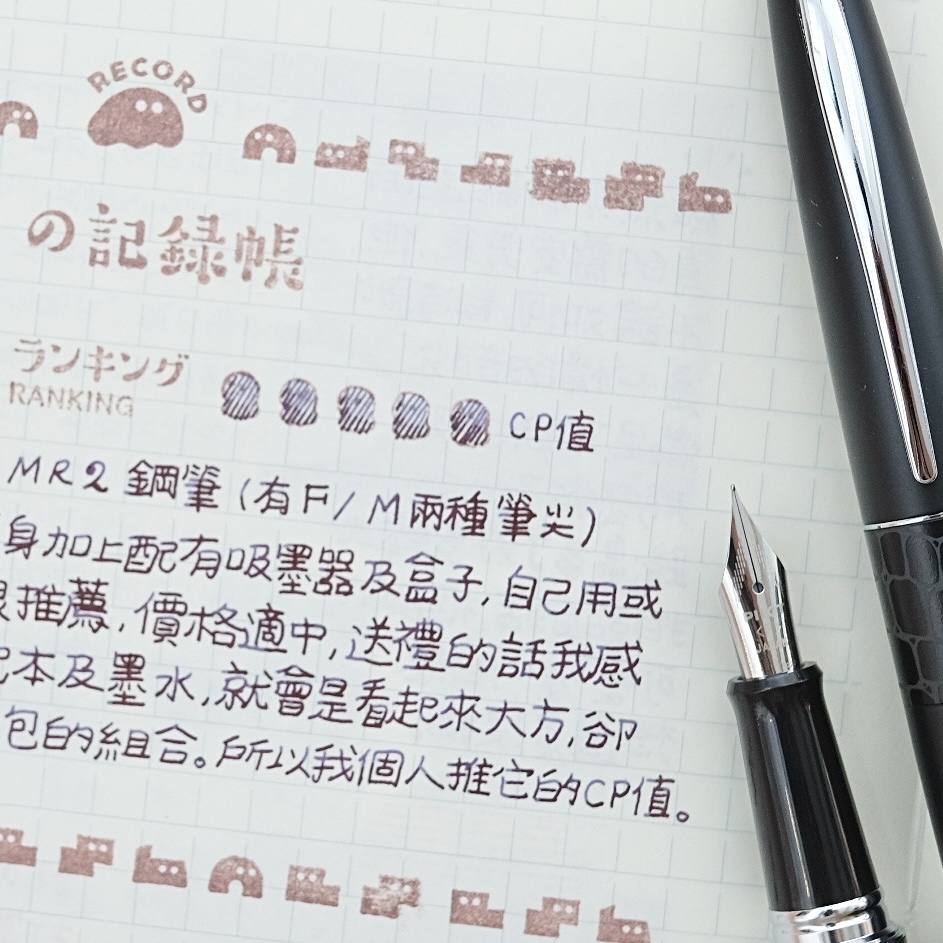 RECORD
の記録帳
ランキング
RANKING
CP値
MR2 鋼筆 (有F/M兩種筆尖)
身加上配有吸墨器及盒子,自己用或
推薦,價格適中,送禮的話我感
本及墨水,就會是看起來大方,卻
包的組合。所以我個人推它的CP值。